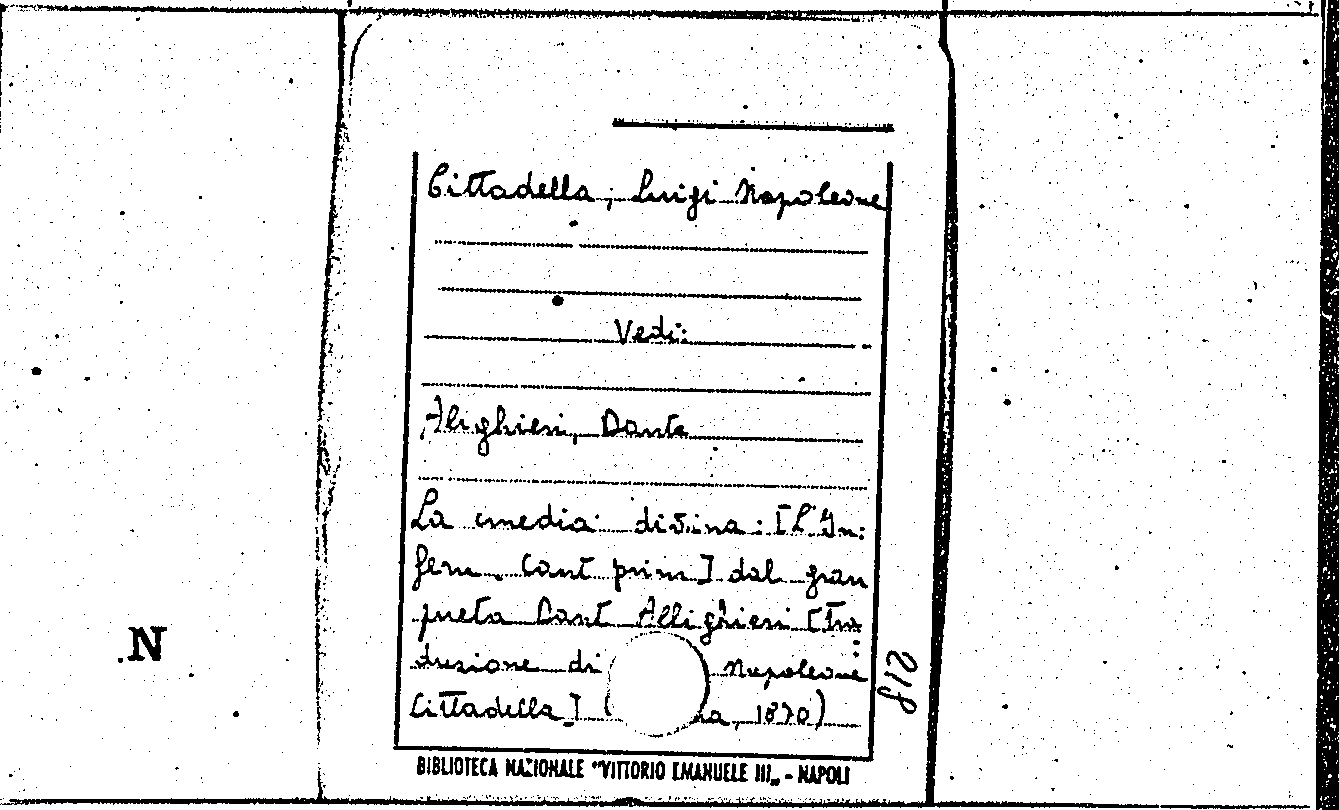 Cittadella, Luigi Napoleone
Vedi:
Alighieri, Dante
La cmedia divina: [L'In:
fern. Cant prim] dal gran
pueta Dant Allighieri [Tra:
duzione di Napoleone
Cittadella] ( na, 1870)
218
N
BIBLIOTECA NAZIONALE "VITTORIO EMANUELE III„ - NAPOLI